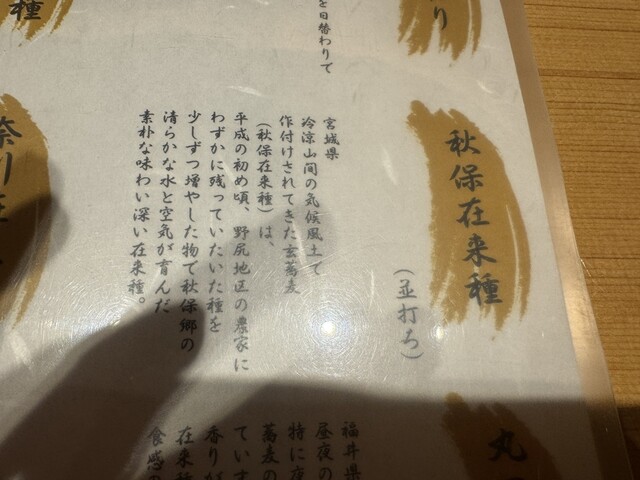 り
を日替わりで
種
秋保在来種
(並打ち)
宮城県
冷涼山間の気候風土で
作付けされてきた玄蕎麦
(秋保在来種)は、
平成の初め頃、野尻地区の農家に
わずかに残っていたいた種を
少しずつ増やした物で秋保郷の
清らかな水と空気が育んだ
素朴な味わい深い在来種。
奈川在
丸
福井県
昼夜の
特に夜
蕎麦の
ていす
香りが
在来種
食感の